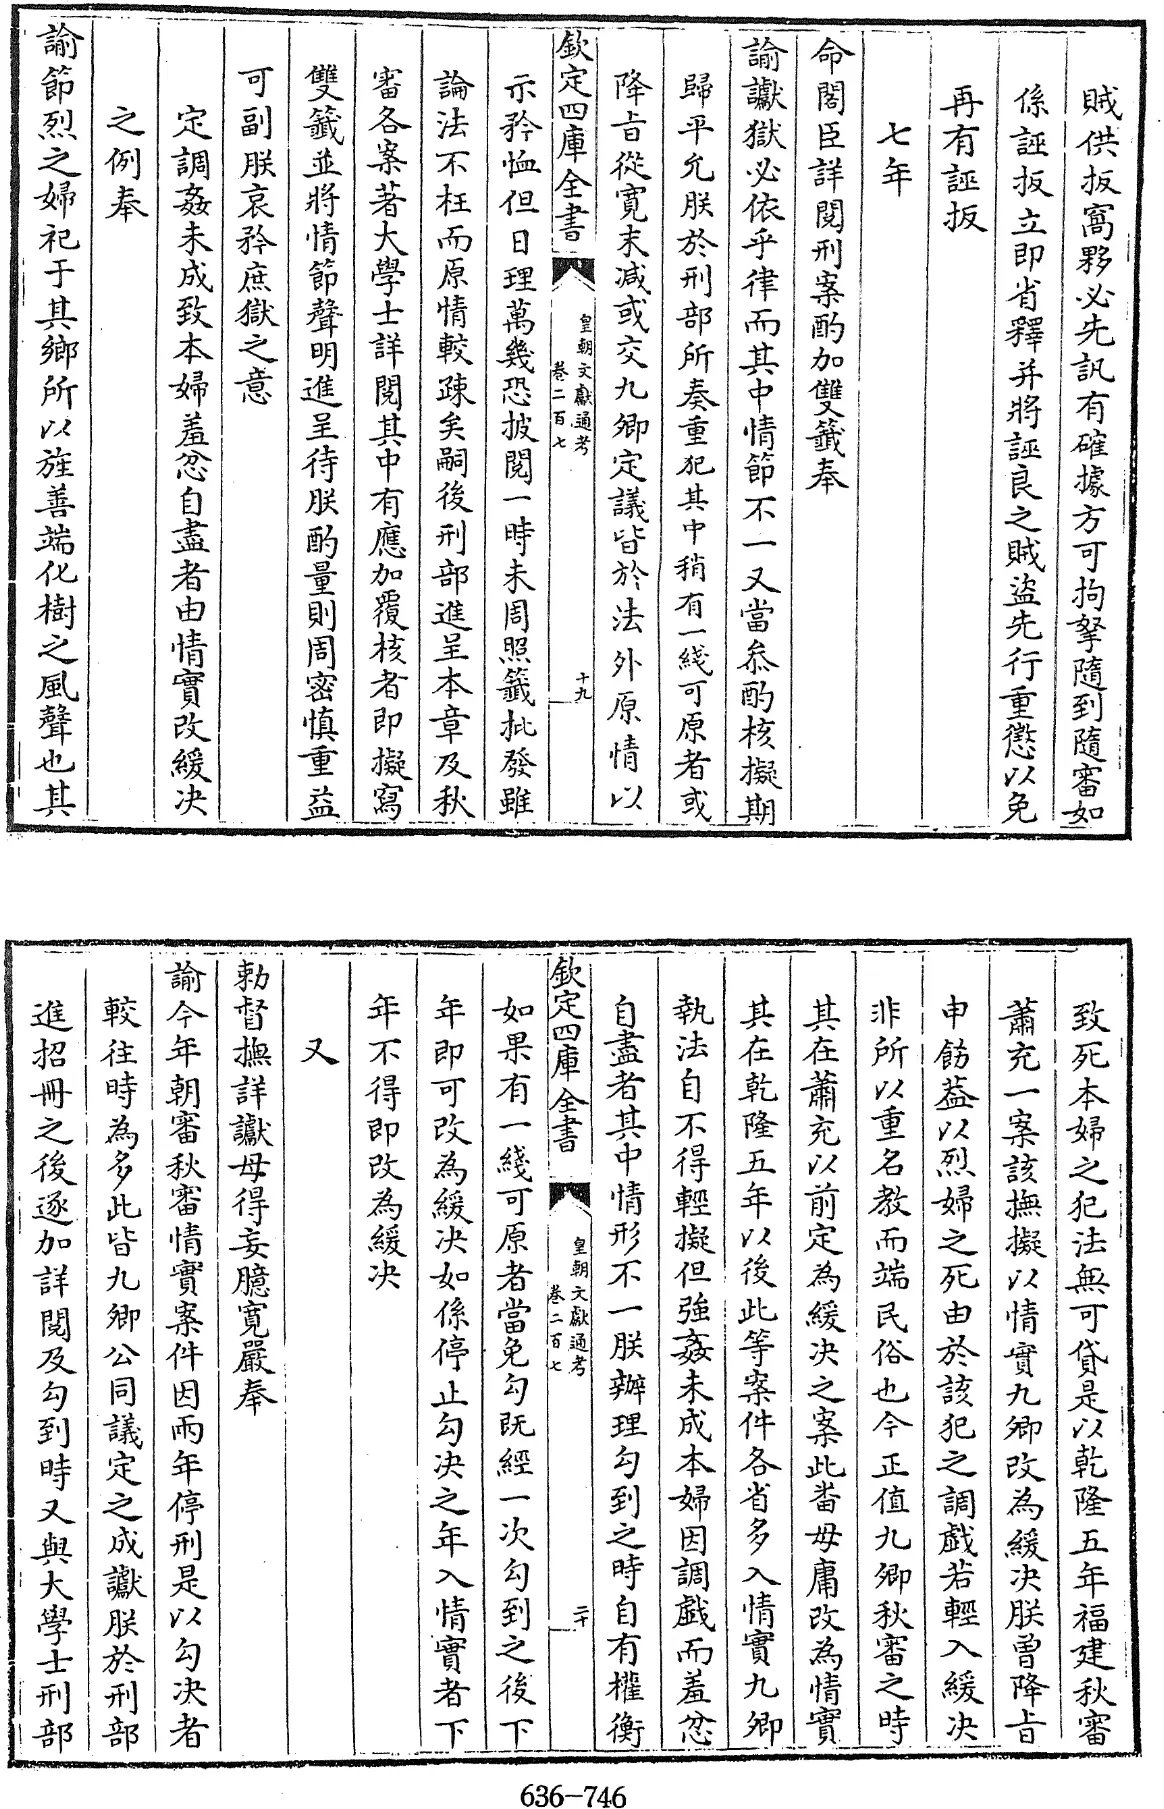 賊供扳窩夥必先訊有確據方可拘拏隨到隨審如
係誣扳立即省釋并將誣良之賊盜先行重懲以免
再有誣扳
七年
命閣臣詳閱刑案酌加雙籤奉
諭讞獄必依乎律而其中情節不一又當叅酌核擬期
歸平允朕於刑部所奏重犯其中稍有一綫可原者或
降旨從寛末減或交九卿定議皆於法外原情以
欽定四庫全書
皇朝文獻通考
卷二百七
十九
示矜恤但日理萬幾恐披閱一時未周照籤批發雖
論法不枉而原情較疎矣嗣後刑部進呈本章及秋
審各案著大學士詳閱其中有應加覆核者即擬寫
雙籤並將情節聲明進呈待朕酌量則周密慎重益
可副朕哀矜庶獄之意
定調姦未成致本婦羞忿自盡者由情實改緩決
之例奉
諭節烈之婦祀于其鄉所以旌善端化樹之風聲也其
致死本婦之犯法無可貸是以乾隆五年福建秋審
蕭充一案該撫擬以情實九卿改為緩決朕曾降旨
申飭葢以烈婦之死由於該犯之調戲若輕入緩決
非所以重名教而端民俗也今正值九卿秋審之時
其在蕭充以前定為緩決之案此畨毋庸改為情實
其在乾隆五年以後此等案件各省多入情實九卿
執法自不得輕擬但強姦未成本婦因調戲而羞忿
自盡者其中情形不一朕辦理勾到之時自有權衡
欽定四庫全書
皇朝文獻通考
卷二百七
二十
如果有一綫可原者當免勾既經一次勾到之後下
年即可改為緩決如係停止勾決之年入情實者下
年不得即改為緩決
又
勅督撫詳讞毋得妄臆寛嚴奉
諭今年朝審秋審情實案件因兩年停刑是以勾決者
較往時為多此皆九卿公同議定之成讞朕於刑部
進招冊之後逐加詳閱及勾到時又與大學士刑部
636-746